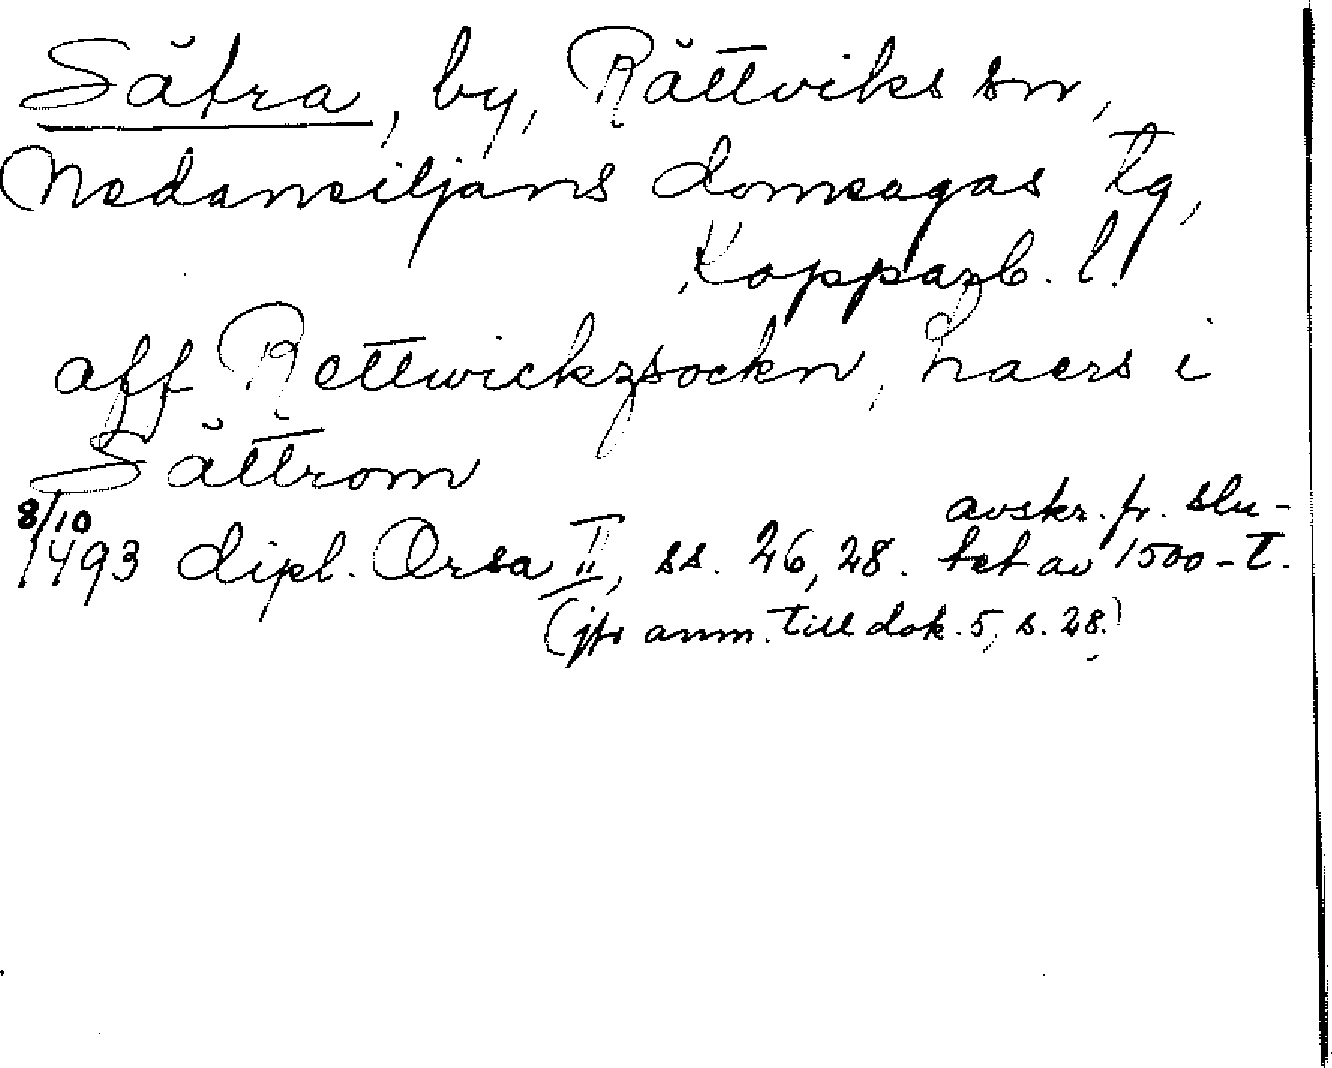 Sätra, by, Rättviks sn,
Nedansiljans domsagas tg,
Kopparb. l.
aff Rettwickzsockn, haers i
Sättrom
8/10 1493 dipl. Orsa II, ss. 26, 28. avskr. fr. slu-
tet av 1500-t.
(jfr anm. till dok. 5, s. 28.)